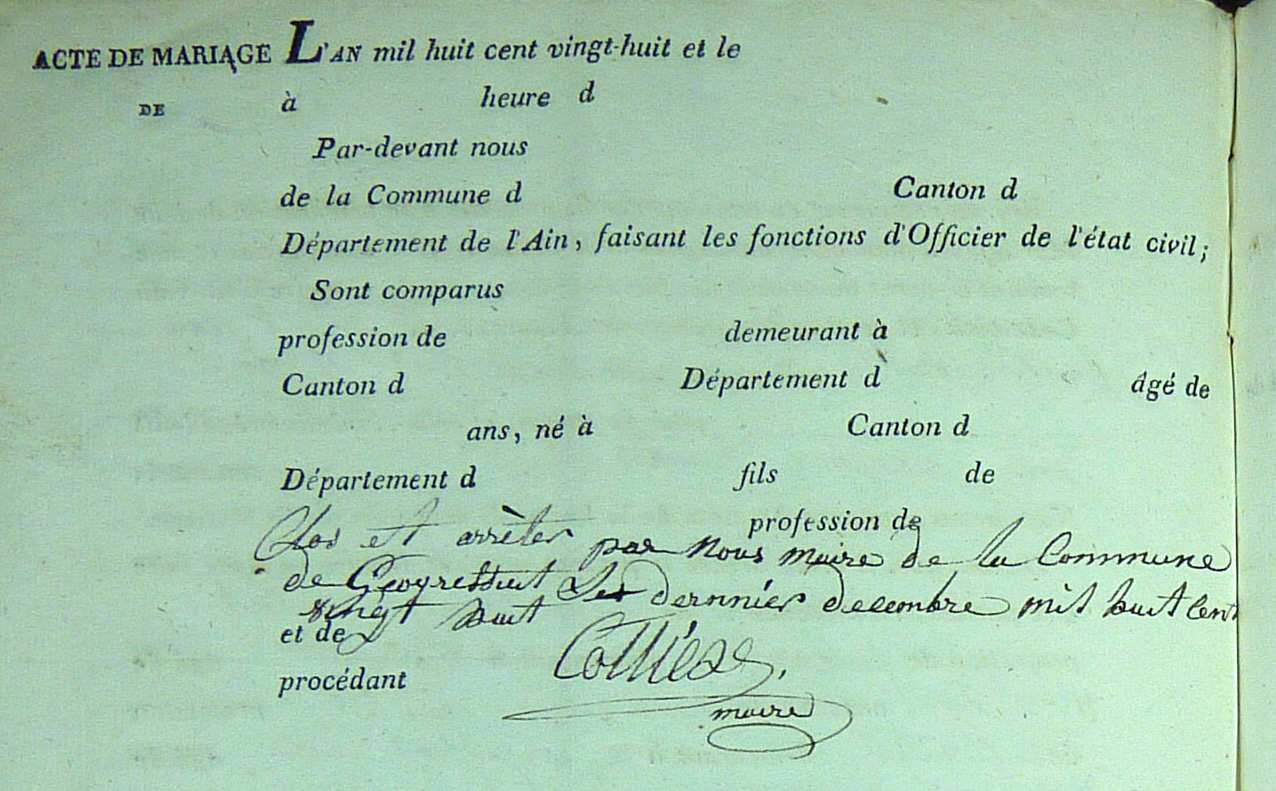 ACTE DE MARIAGE L'AN mil huit cent vingt-huit et le
DE à heure d
Par-devant nous
de la Commune d Canton d
Département de l'Ain, faisant les fonctions d'Officier de l'état civil;
Sont comparus
profession de demeurant à
Canton d Département d âgé de
ans, né à Canton d
Département d fils de
profession de
Clos et arrèter par nous maire de la Commune
de Le dernnier decembre mil huit Cent
vingt huit
et de
procédant
maire